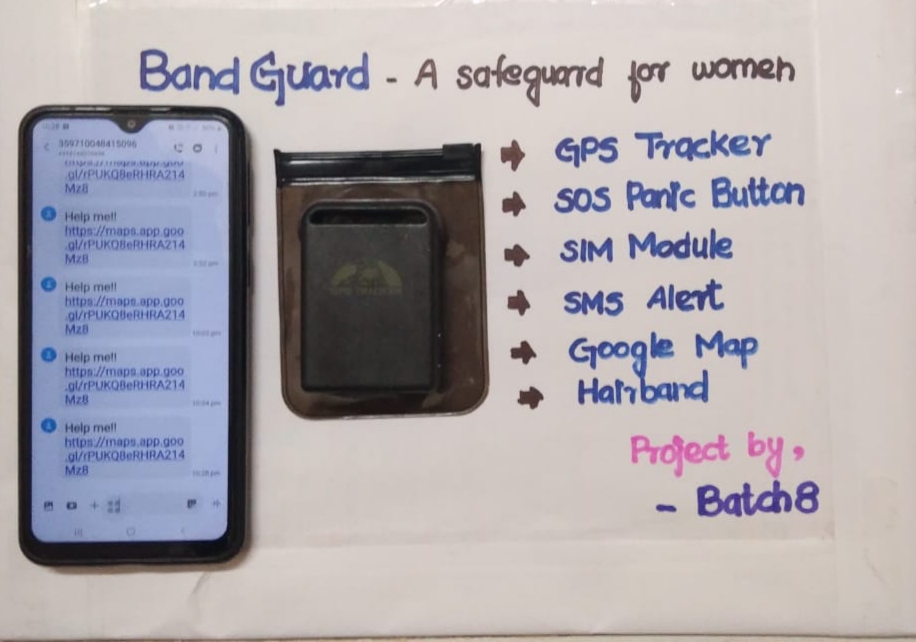 Band Guard - A safeguard for women
359710046415096
.gl/rPUKQ8eRHRA214
Mz8
Help me!!
https://maps.app.goo
.gl/rPUKQ8eRHRA214
Mz8
Help me!!
https://maps.app.goo
.gl/rPUKQ8eRHRA214
Mz8
10:03 pm
Help me!!
https://maps.app.goo
.gl/rPUKQ8eRHRA214
Mz8
10:04 pm
Help me!!
https://maps.app.goo
.gl/rPUKQ8eRHRA214
Mz8
10:28 pm
GPS TRACKER
GPS Tracker
SOS Panic Button
SIM Module
SMS Alert
Google Map
Hairband
Project by,
- Batch 8